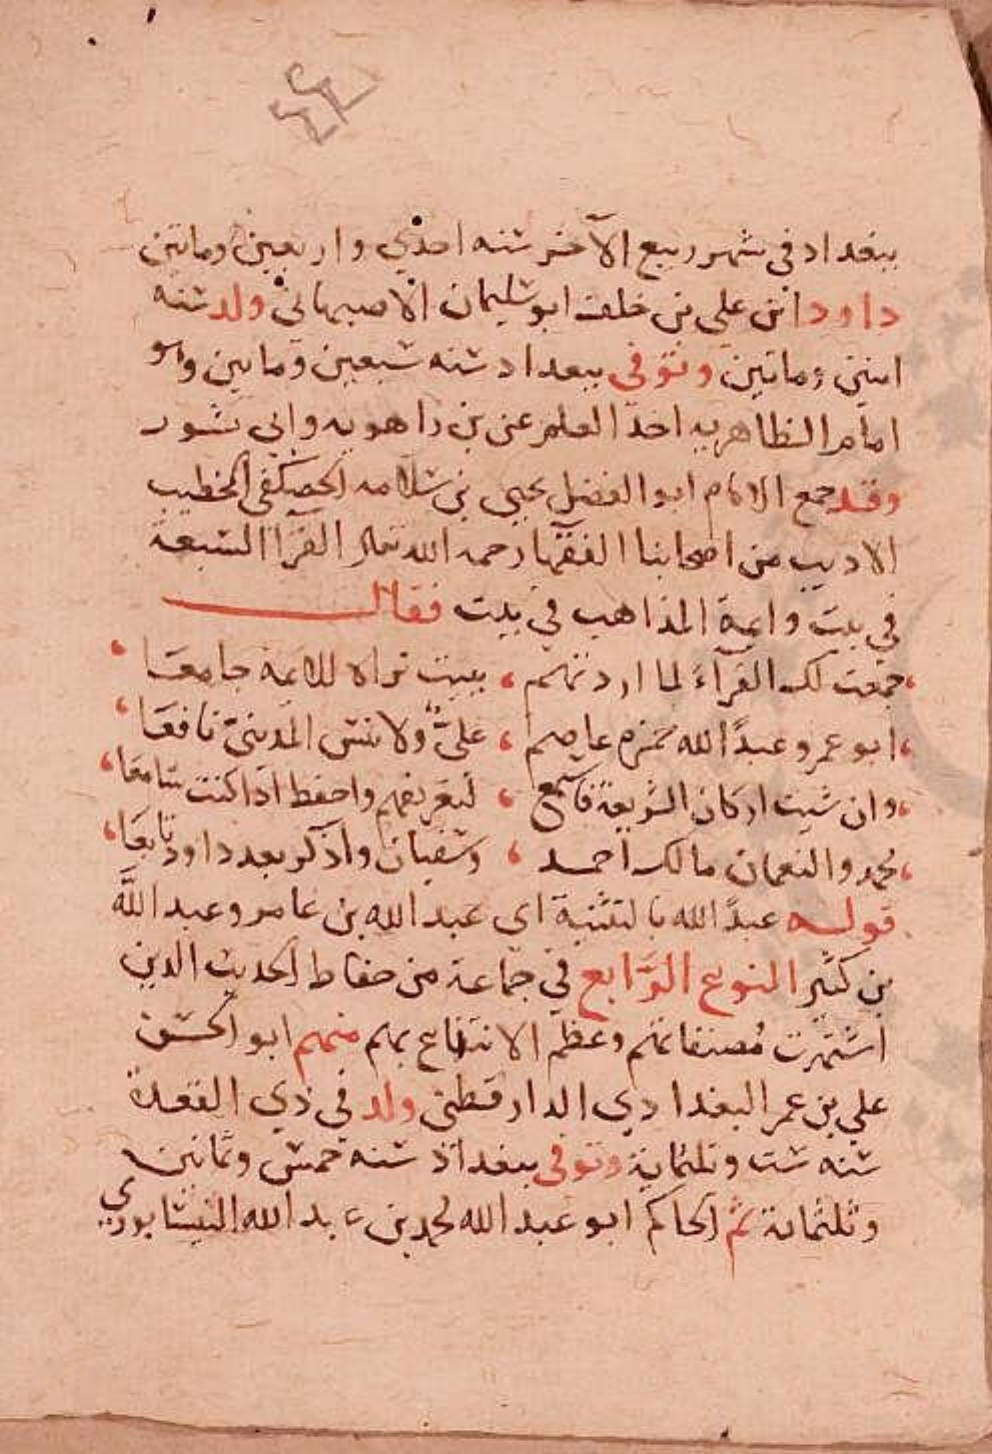 ببغداد في شهر ربيع الآخر سنه احدي واربعين وماتين
داود ابن علي بن خلف ابو سليمان الاصبهاني ولد سنه
اثنتي وماتين وتوفي ببغداد سنه سبعين وماتين وهو
امام الظاهريه اخذ العلم عن بن راهويه وابي ثور
وقد جمع الامام ابو الفضل يحيى بن سلامه الحصكفي الخطيب
الاديب من اصحابنا الفقها رحمه الله تعالى القرآ السبعة
في بيت وايمة المذاهب في بيت فقال
جمعت لك القرآء لما اردتهم ، ببيت تراه للائمة جامعا
ابو عمرو عبدا الله حمزه عاصم ، عليّ ولا تنس المدينيّ نافعا
وان شيت اركان الشريعة فاستمع ، لتعرفهم واحفظ اذا كنت سامعا
محمد والنعمان مالك احمد ، وسفيان واذكر بعد داود تابعا
قوله عبدا الله بالتثنية اى عبد الله بن عامر وعبد الله
بن كثير النوع الرابع في جماعة من حفاظ الحديث الذين
اشتهرت مصنفاتهم وعظم الانتفاع بهم منهم ابو الحسن
علي بن عمر البغدادي الدارقطني ولد في ذي القعدة
سنه ست وثلثماية وتوفي ببغداد سنه خمس وثمانين
وثلثماية ثم الحاكم ابو عبد الله محمد بن عبد الله النيسابوري